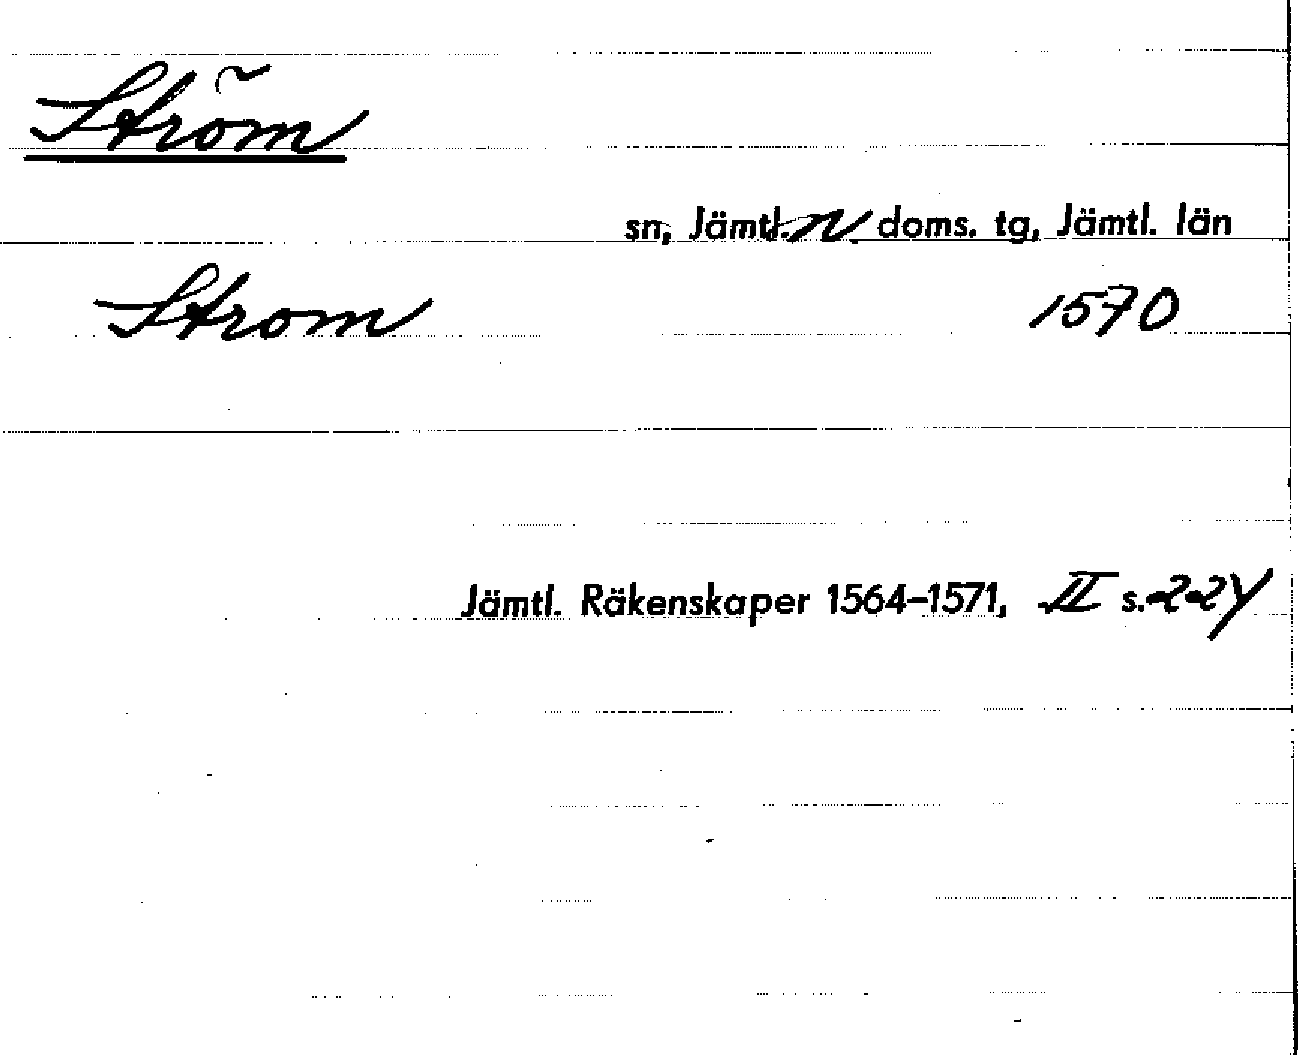 Ström
sn, Jämtl. N doms. tg, Jämtl. län
Strom 1570
Jämtl. Räkenskaper 1564-1571, II s. 224